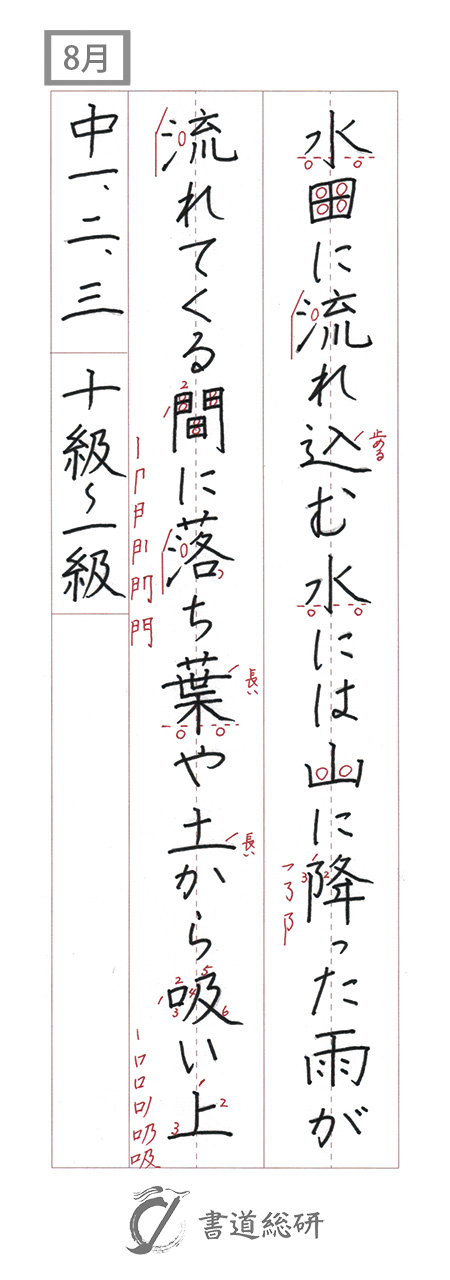 8月
水田に流れ込む水には山に降った雨が
流れてくる間に落ち葉や土から吸い上
中一、二、三
十級〜一級
止める
長い
長い
1
2
3
2
1
2
3
4
5
6
1
2
3
丨 冂 𠃛 門 門
丨 口 口 吸
書道総研